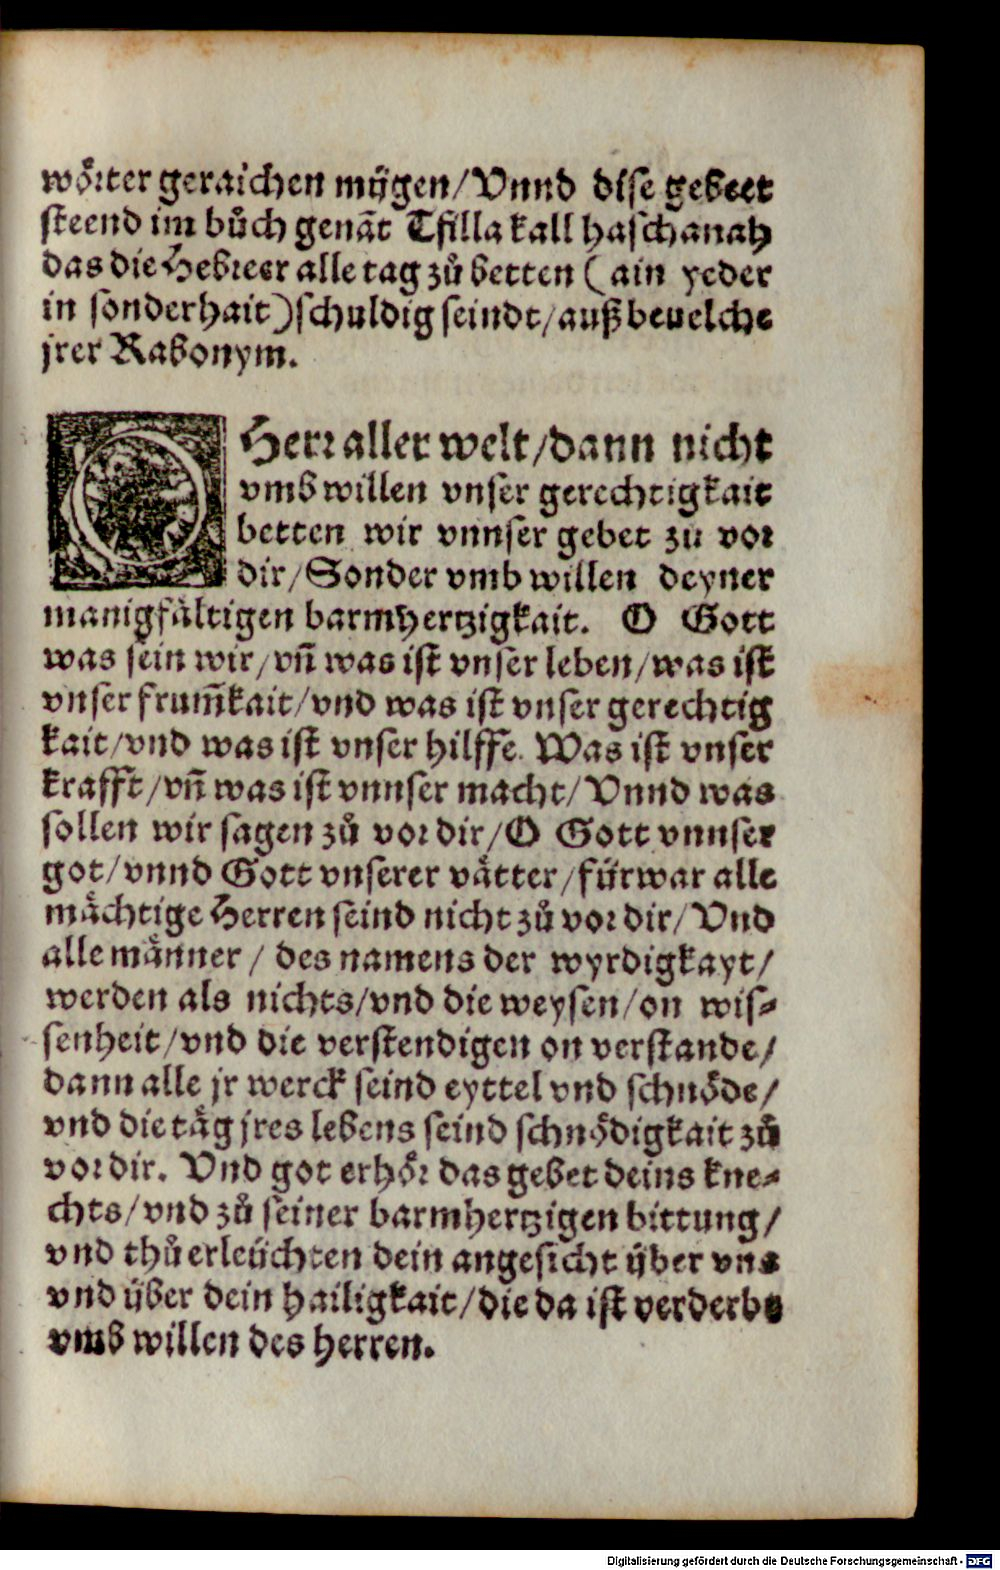 wörter geraichen mügen/Vnnd dise gebeet
steend im bůch genãt Tfilla kall haschanah
das die Hebreer alle tag zů betten (ain yeder
in sonderhait) schuldig seindt/auß beuelche
jrer Rabonym.
O Herr aller welt/dann nicht
vmb willen vnser gerechtigkait
betten wir vnnser gebet zu vor
dir/Sonder vmb willen deyner
manigfältigen barmhertzigkait. O Gott
was sein wir/vñ was ist vnser leben/was ist
vnser frum̃kait/vnd was ist vnser gerechtig
kait/vnd was ist vnser hilffe. Was ist vnser
krafft/vñ was ist vnnser macht/Vnnd was
sollen wir sagen zů vor dir/O Gott vnnser
got/vnnd Gott vnserer vätter/fürwar alle
mächtige Herren seind nicht zů vor dir/Vnd
alle männer/des namens der wyrdigkayt/
werden als nichts/vnd die weysen/on wis-
senheit/vnd die verstendigen on verstande/
dann alle jr werck seind eyttel vnd schnöde/
vnd die täg jres lebens seind schnödigkait zů
vor dir. Vnd got erhör das gebet deins kne-
chts/vnd zů seiner barmhertzigen bittung/
vnd thů erleüchten dein angesicht über vns
vnd über dein hailigkait/die da ist verderbt
vmb willen des herren.
Digitalisierung gefördert durch die Deutsche Forschungsgemeinschaft - DFG